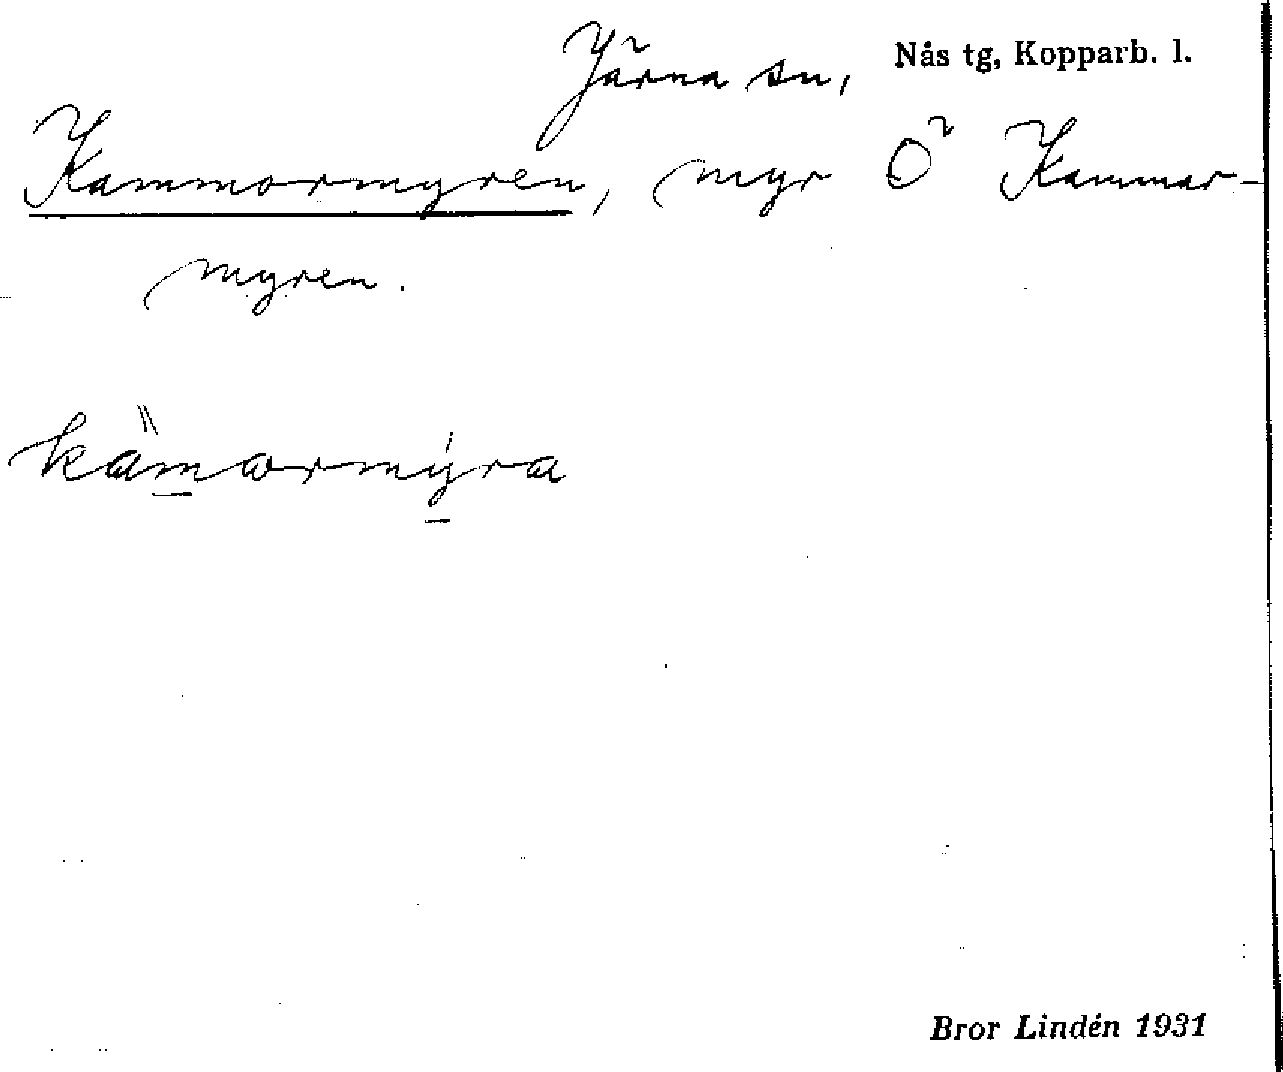 Järna sn, Nås tg, Kopparb. l.
Kammormyren, myr Ö Kammar-
myren.
kämormyra
Bror Lindén 1931